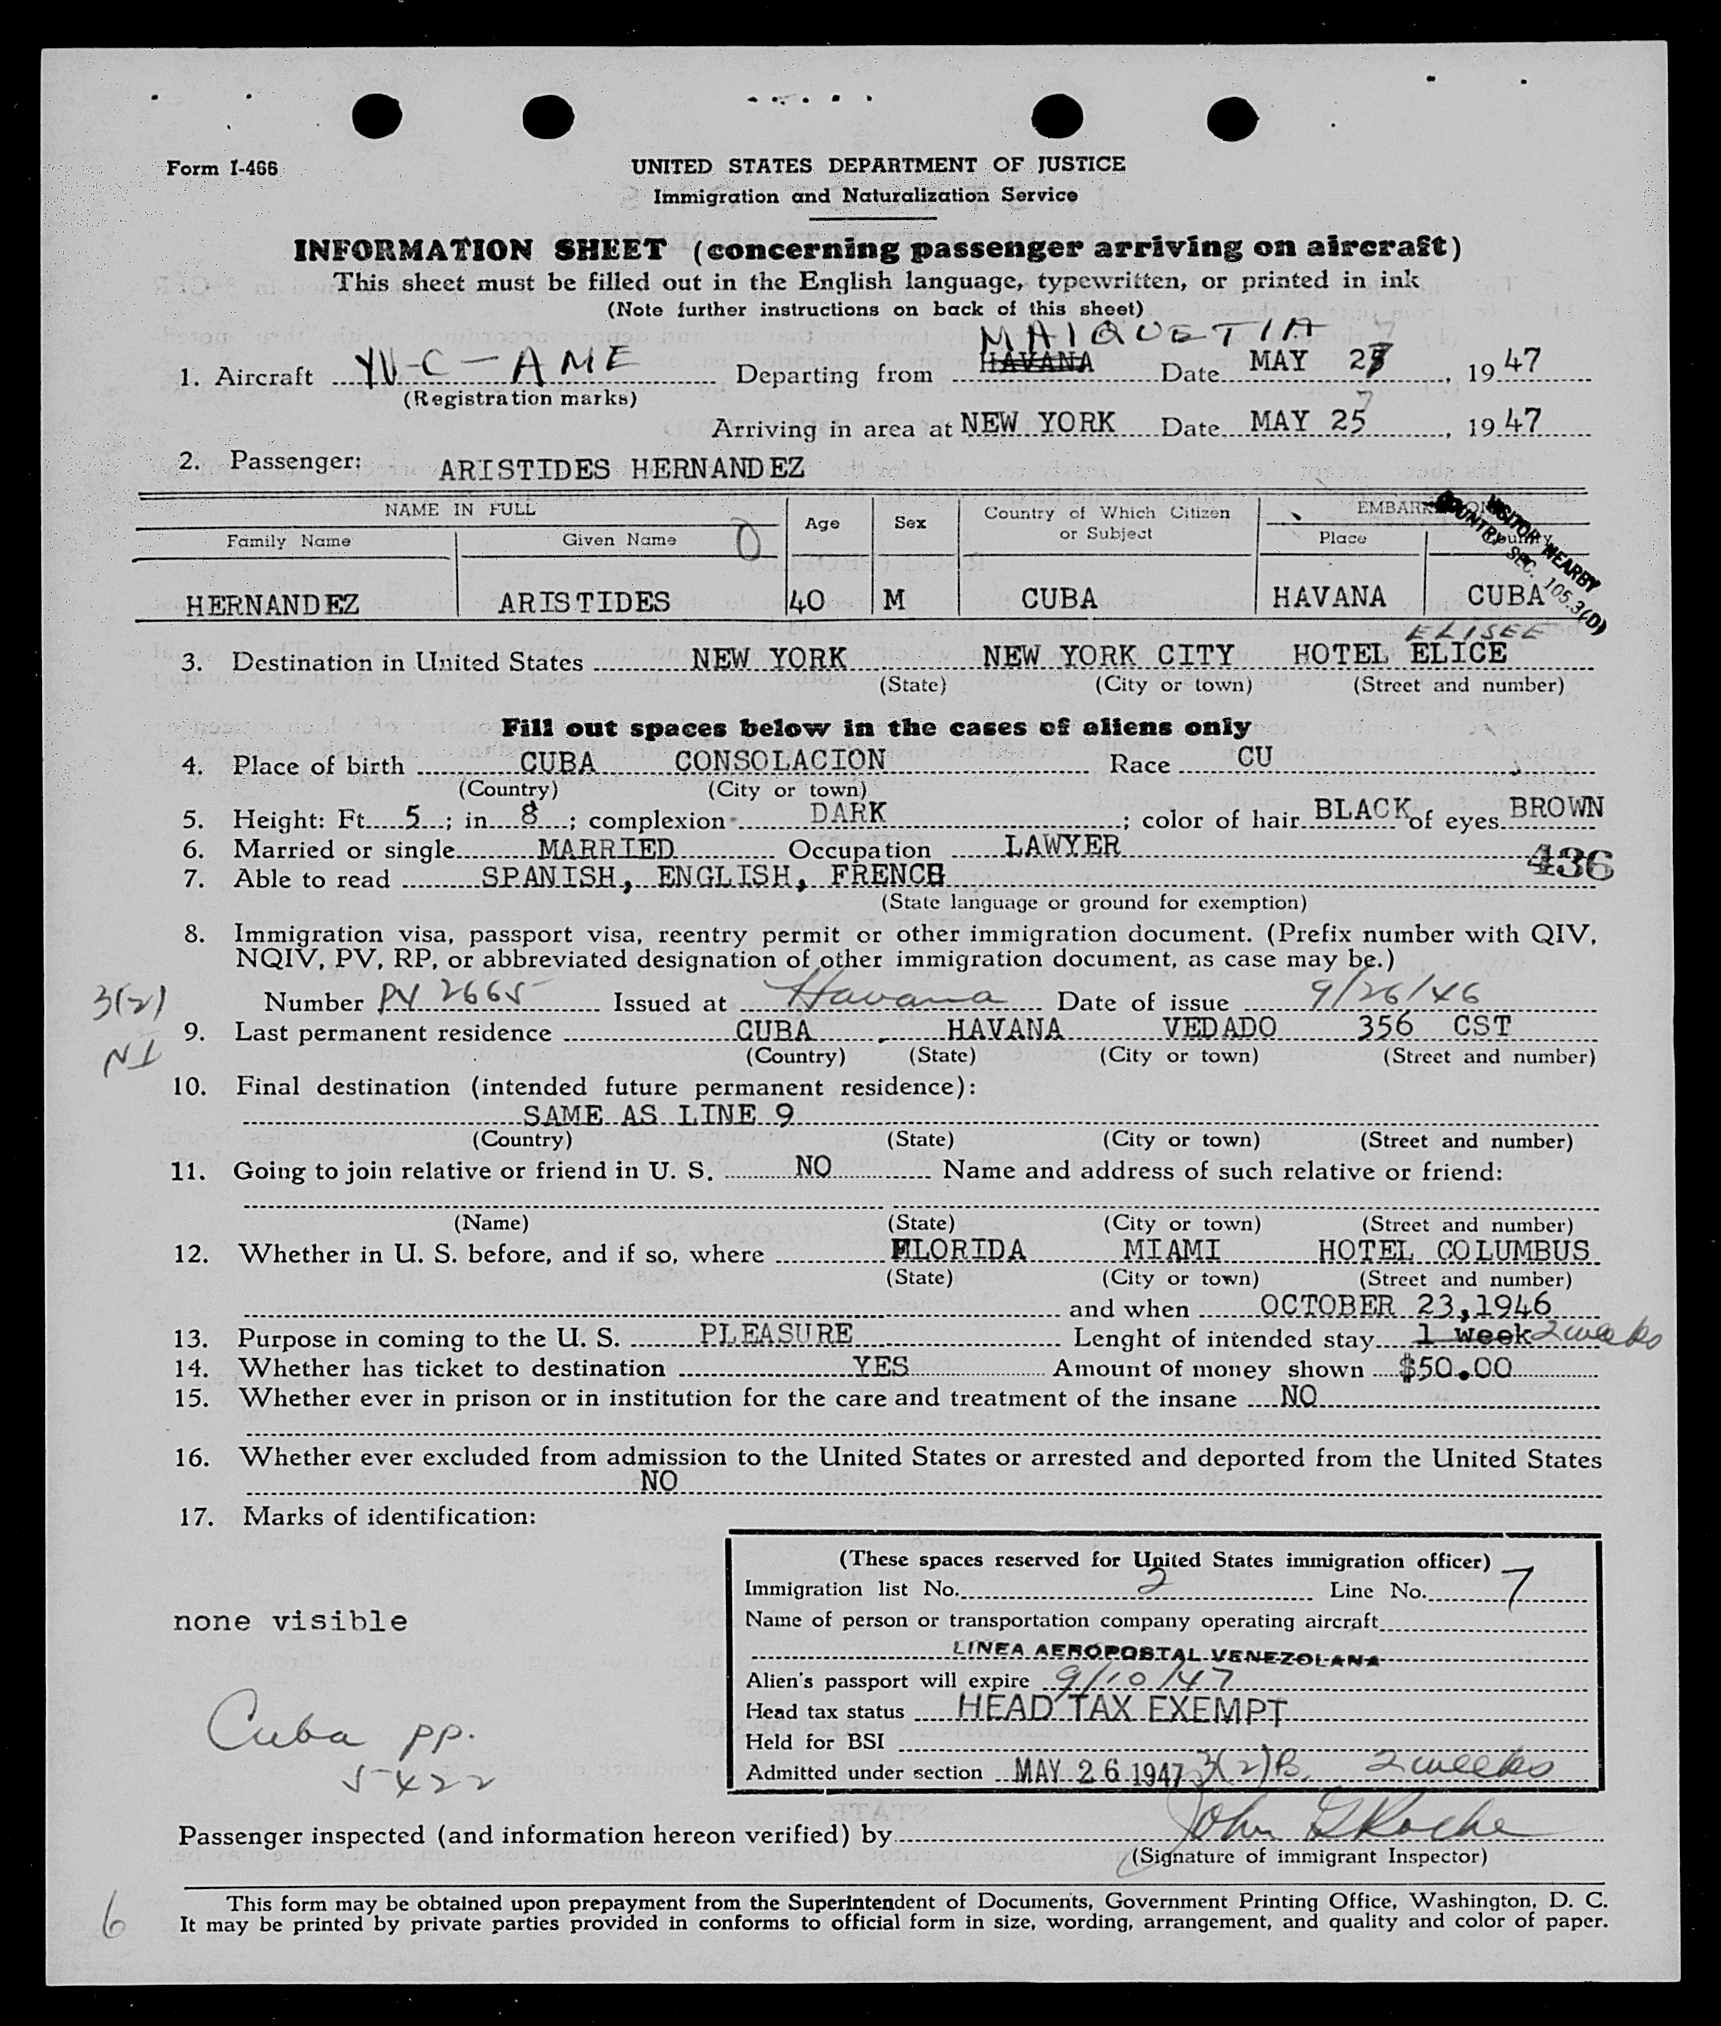 Form I-466
UNITED STATES DEPARTMENT OF JUSTICE
Immigration and Naturalization Service
INFORMATION SHEET (concerning passenger arriving on aircraft)
This sheet must be filled out in the English language, typewritten, or printed in ink
(Note further instructions on back of this sheet)
MAIQUETIA
1. Aircraft YV-C-AME Departing from HAVANA Date MAY 25, 1947
(Registration marks)
Arriving in area at NEW YORK Date MAY 25, 1947
2. Passenger: ARISTIDES HERNANDEZ
NAME IN FULL Age Sex Country of Which Citizen or Subject EMBARKATION
Family Name Given Name Place Country
VISITOR NEARBY
COUNTRY SEC. 105.3(D)
HERNANDEZ ARISTIDES 40 M CUBA HAVANA CUBA
ELISEE
3. Destination in United States NEW YORK NEW YORK CITY HOTEL ELICE
(State) (City or town) (Street and number)
Fill out spaces below in the cases of aliens only
4. Place of birth CUBA CONSOLACION Race CU
(Country) (City or town)
5. Height: Ft. 5; in. 8; complexion DARK; color of hair BLACK of eyes BROWN
6. Married or single MARRIED Occupation LAWYER
436
7. Able to read SPANISH, ENGLISH, FRENCH
(State language or ground for exemption)
8. Immigration visa, passport visa, reentry permit or other immigration document. (Prefix number with QIV,
NQIV, PV, RP, or abbreviated designation of other immigration document, as case may be.)
3(2) Number PV 2665 Issued at Havana Date of issue 9/26/46
9. Last permanent residence CUBA, HAVANA VEDADO 356 CST
NI (Country) (State) (City or town) (Street and number)
10. Final destination (intended future permanent residence):
SAME AS LINE 9
(Country) (State) (City or town) (Street and number)
11. Going to join relative or friend in U. S. NO Name and address of such relative or friend:
(Name) (State) (City or town) (Street and number)
12. Whether in U. S. before, and if so, where FLORIDA MIAMI HOTEL COLUMBUS
(State) (City or town) (Street and number)
and when OCTOBER 23, 1946
13. Purpose in coming to the U. S. PLEASURE Lenght of intended stay 1 week 2 weeks
14. Whether has ticket to destination YES Amount of money shown $50.00
15. Whether ever in prison or in institution for the care and treatment of the insane NO
16. Whether ever excluded from admission to the United States or arrested and deported from the United States
NO
17. Marks of identification:
none visible
Cuba pp.
5422
(These spaces reserved for United States immigration officer)
Immigration list No. 2 Line No. 7
Name of person or transportation company operating aircraft
LINEA AEROPOSTAL VENEZOLANA
Alien's passport will expire 9/10/47
Head tax status HEAD TAX EXEMPT
Held for BSI
Admitted under section MAY 26 1947 3(2)B. 2 weeks
Passenger inspected (and information hereon verified) by John G Roche
(Signature of immigrant Inspector)
This form may be obtained upon prepayment from the Superintendent of Documents, Government Printing Office, Washington, D. C.
6 It may be printed by private parties provided in conforms to official form in size, wording, arrangement, and quality and color of paper.